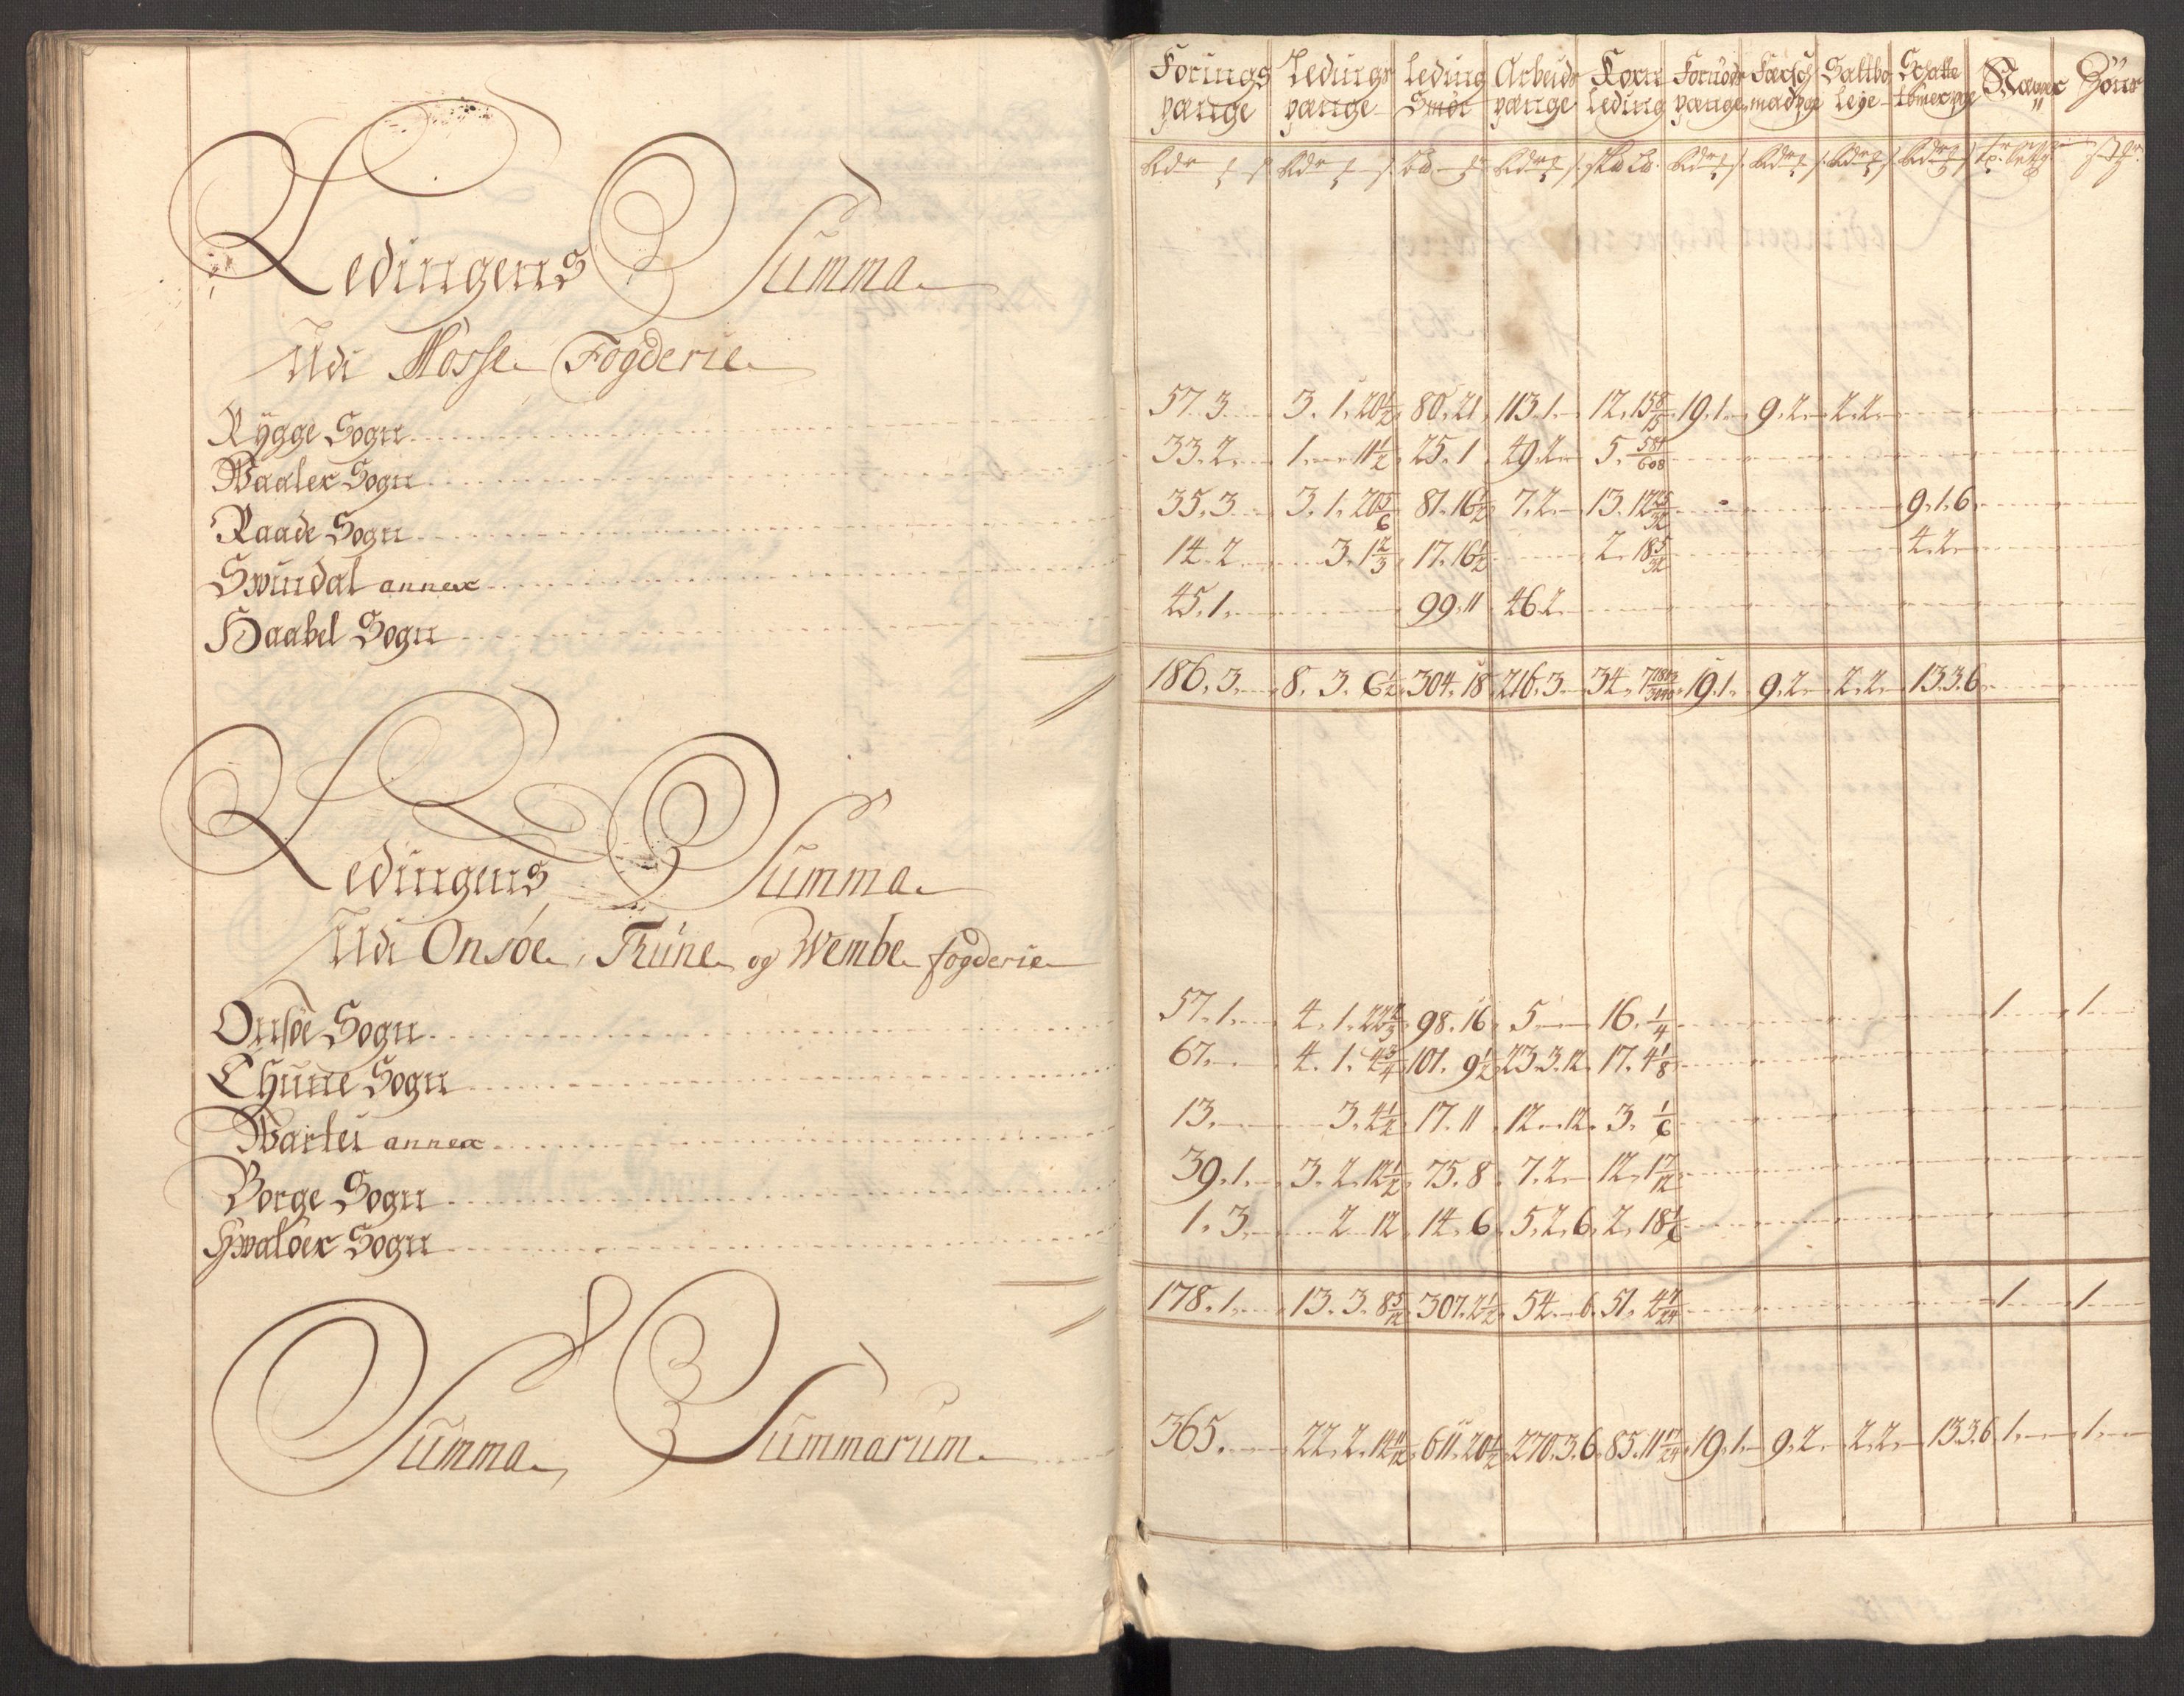 Ledingens Summa
Udi Mosse Fogderie
Rygge Sogn
Waaler Sogn
Raade Sogn
Swindal annex
Haabel Sogn
Ledingens Summa
Udi Onsøe, Thune og Wembe fogderie
Onsøe Sogn
Thune Sogn
Wartei annex
Borge Sogn
Hwaløer Sogn
Summa Summarum
Forings Ledings Leding Arbeids Korn Fornöds Færsch Saltbo Schatte Næger Höns
pænge pænge Smör pænge Leding pænge madpge leje tömerpge
57.3. 3.1.20½ 80.21 113.1. 12.15 8/15 19.1. 9.2. 2.2.
33.2. 1. 11½ 25.1 49.2 5. 581/608
35.3 3.1.20 5/6 81.16½ 7.2. 13.12 25/32 9.1.6
14.2 3.1 2/3 17.16½ 2.18 5/32 4.2
45.1. 99.11 46.2
186.3. 8.3.6½ 304.18 216.3 34.7 19.1. 9.2. 2.2. 13.3.6
57.1. 4.1.22 2/3 98.16 5 16.¼ 1 1
67. 4.1.4¾ 101.9½ 23.3.12 17.4⅛
13. 3.4½ 17.11 12..12. 3. 1/6
39.1. 3.2.12½ 75.8 7.2. 12.1 7/12
1.3. 2 12 14.6 5.2.6. 2.18 1/6
178.1. 13.3.8 5/12 307.2½ 54. 6. 51.4 1/24 1 1
365. 22.2.14 11/12 611.20½ 270.3.6 85.11 17/24 19.1. 9.2. 2.2. 13.3.6 1. 1.